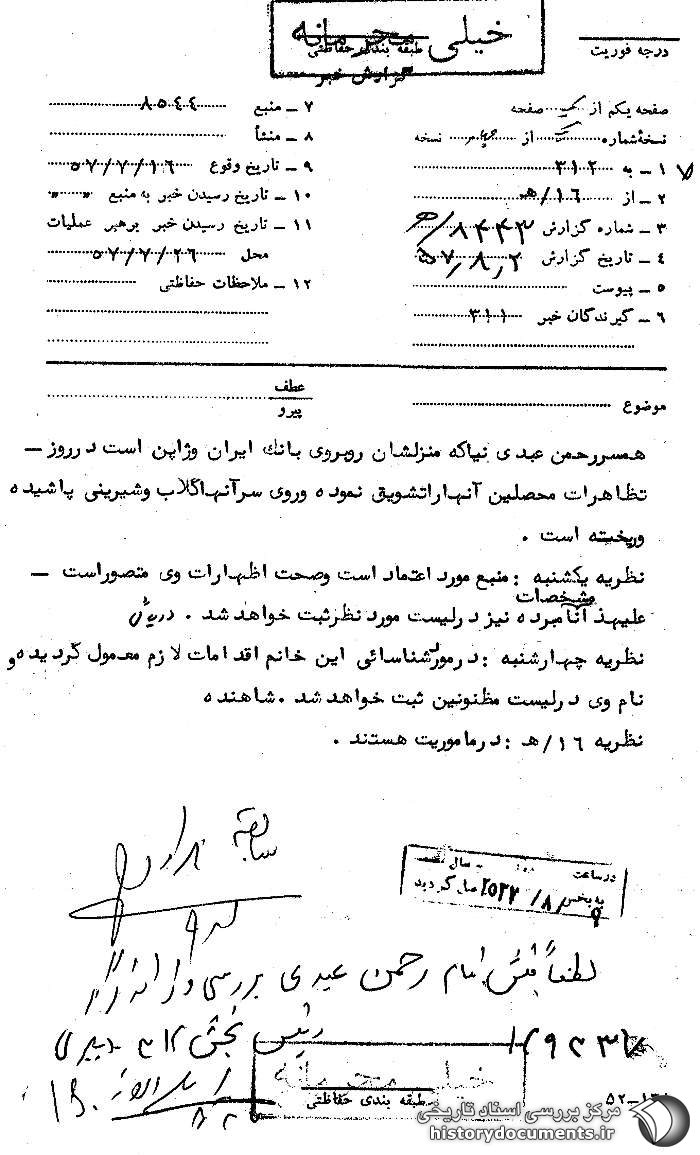 خیلی محرمانه
طبقه بندی حفاظتی
گزارش خبر
درجه فوریت
صفحه یکم از یک صفحه
نسخهٔ شماره از چهار نسخه
۱ - به ۳۱۲
۲ - از ۱۶/هـ
۳ - شماره گزارش ۸۴۴۳/هـ
۴ - تاریخ گزارش ۵۷/۸/۲
۵ - پیوست
۶ - گیرندگان خبر ۳۱۱
۷ - منبع ۸۵۴۴
۸ - منشأ
۹ - تاریخ وقوع ۵۷/۷/۱۶
۱۰ - تاریخ رسیدن خبر به منبع " "
۱۱ - تاریخ رسیدن خبر برهبر عملیات
محل ۵۷/۷/۲۶
۱۲ - ملاحظات حفاظتی
موضوع
عطف
پیرو
همسررحمن عبدی نیاکه منزلشان روبروی بانك ایران وژاپن است درروز -
تظاهرات محصلین آنهاراتشویق نموده وروی سرآنهاگلاب وشیرینی پاشیده
وریخته است .
نظریه یکشنبه : منبع مورد اعتماد است وصحت اظهارات وی متصوراست -
مشخصات
علیهذا نامبرده نیز درلیست مورد نظرثبت خواهد شد . دریائی
نظریه چهارشنبه : درموردشناسائی این خانم اقدامات لازم معمول گردیده و
نام وی درلیست مظنونین ثبت خواهد شد . شاهنده
نظریه ۱۶/هـ : درماموریت هستند .
سابقه ندارد
درساعت روز به سال
به بخش ۹/۸/۲۵۳۷ واصل گردید
لطفاً بنام رحمن عبدی بررسی و
رئیس بخش ۳۱۲ دبیری
خیلی محرمانه
طبقه بندی حفاظتی
مرکز بررسی اسناد تاریخی
historydocuments.ir